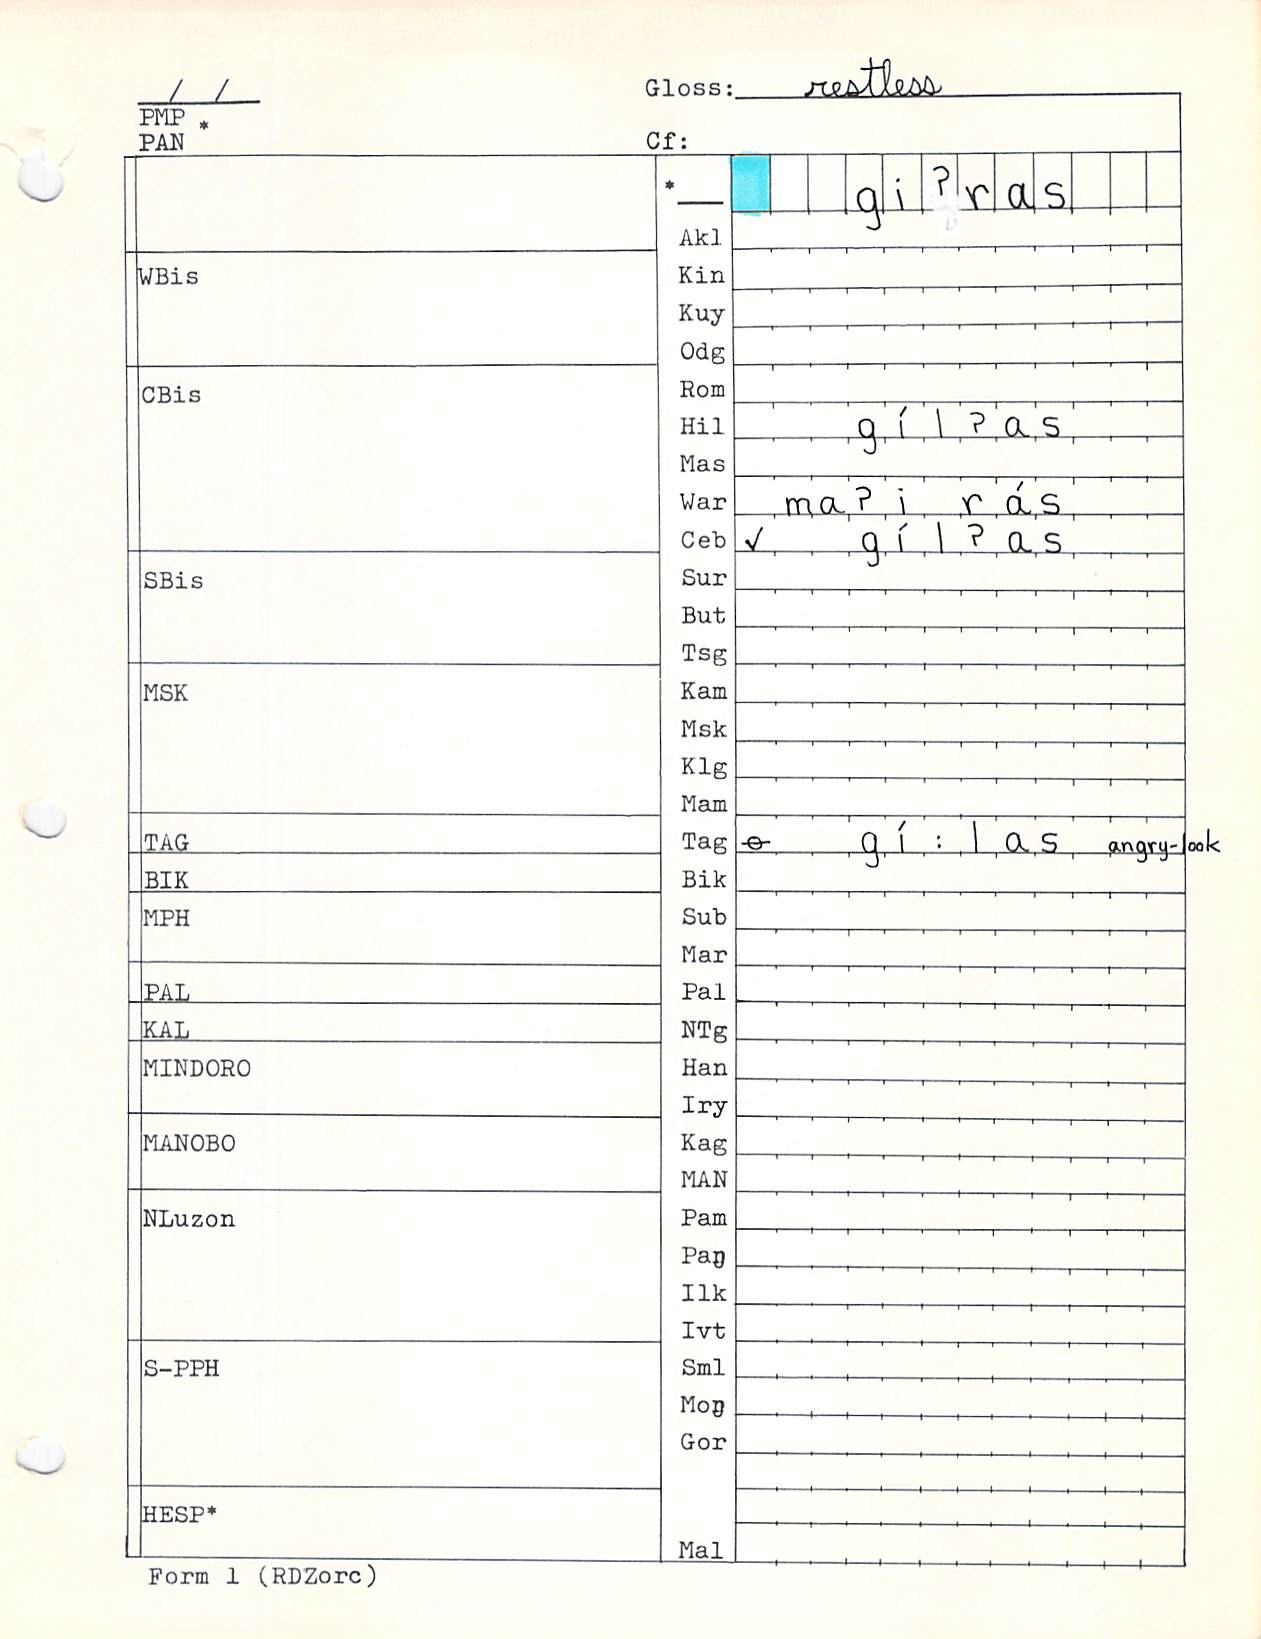 / /
Gloss: restless
PMP *
PAN
Cf:
*__ gi?ras
Akl
WBis
Kin
Kuy
Odg
CBis
Rom
Hil gíl?as
Mas
War ma?i rás
Ceb ✓ gíl?as
SBis
Sur
But
Tsg
MSK
Kam
Msk
Klg
Mam
TAG
Tag gí:las angry-look
BIK
Bik
MPH
Sub
Mar
PAL
Pal
KAL
NTg
MINDORO
Han
Iry
MANOBO
Kag
MAN
NLuzon
Pam
Paŋ
Ilk
Ivt
S-PPH
Sml
Moŋ
Gor
HESP*
Mal
Form 1 (RDZorc)